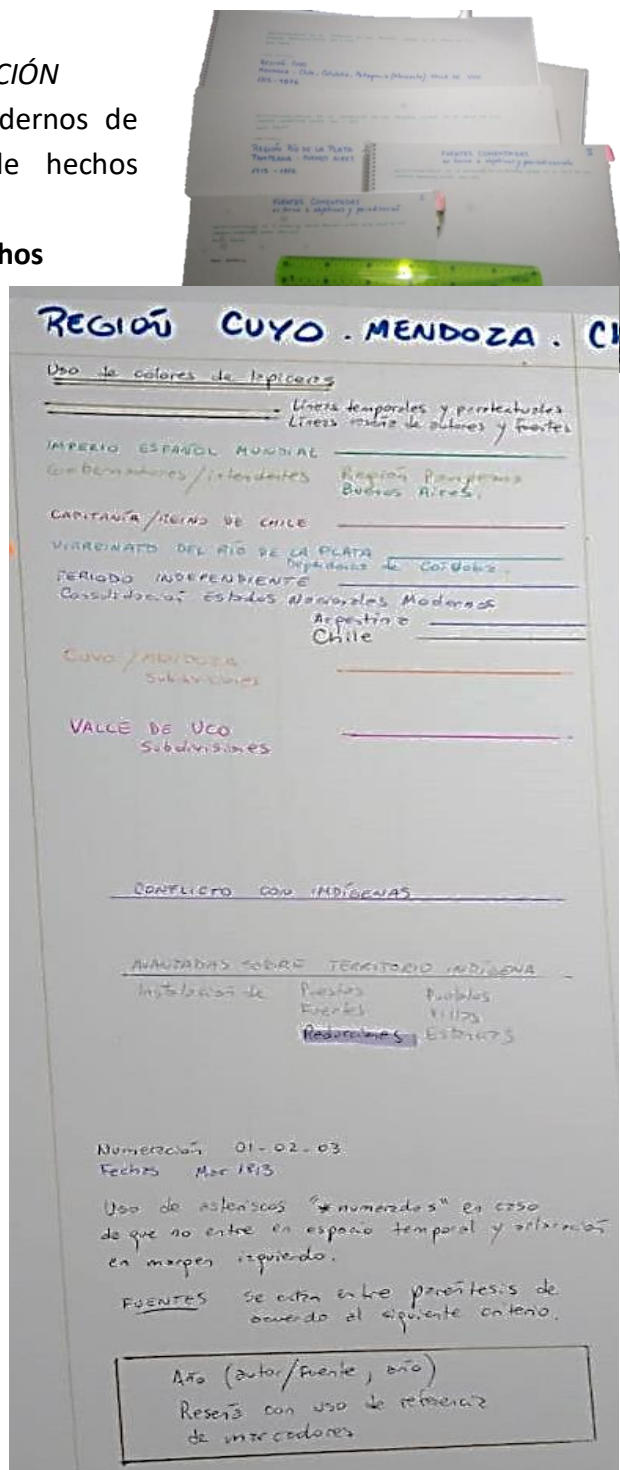 CIÓN
dernos de
de hechos
hos
REGIÓN CUYO
1515 - 1876
REGIÓN RÍO DE LA PLATA
PAMPEANA - BUENOS AIRES
1515 - 1876
FUENTES COMENTADAS
en torno a objetivos y periodización
FUENTES COMENTADAS
en torno a objetivos y periodización
REGIÓN CUYO. MENDOZA. CH
Uso de colores de lapiceras
Líneas temporales y paratextuales
Líneas reseña de autores y fuentes
IMPERIO ESPAÑOL MUNDIAL
Gobernadores/intendentes Región Pampeana
Buenos Aires.
CAPITANÍA/REINO DE CHILE
VIRREINATO DEL RÍO DE LA PLATA
de Córdoba.
PERIODO INDEPENDIENTE
Consolidación Estados Nacionales Modernos
Argentina
Chile
CUYO/MENDOZA
Subdivisiones
VALLE DE UCO
Subdivisiones
CONFLICTO CON INDÍGENAS
AVANZADAS SOBRE TERRITORIO INDÍGENA
Instalación de Puestos Pueblos
Fuertes Villas
Reducciones Estancias
Numeración 01-02-03
Fechas Mar 1813
Uso de asteriscos "*numerados" en caso
de que no entre en espacio temporal y aclaración
en margen izquierdo.
FUENTES Se citan entre paréntesis de
acuerdo al siguiente criterio.
Año (autor/fuente, año)
Reseña con uso de referencia
de marcadores